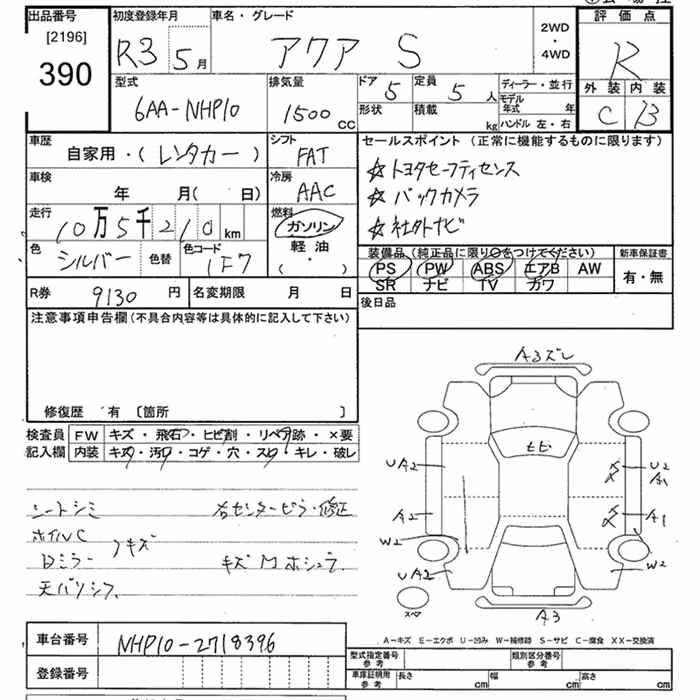 出品番号
[2196]
390
初度登録年月
R3 5月
車名・グレード
アクア S
2WD
・
4WD
評価点
R
外装 内装
C B
型式
6AA-NHP10
排気量
1500 CC
ドア
5
定員
5 人
形状
積載
kg
ディーラー・並行
モデル年式 年
ハンドル 左・右
車歴
自家用・(レンタカー)
シフト
FAT
セールスポイント (正常に機能するものに限ります)
☆トヨタセーフティセンス
☆バックカメラ
☆社外ナビ
車検
年 月( 日)
冷房
AAC
走行
10万5千210 km
燃料
ガソリン
軽油
( ・ )
色
シルバー
色替
色コード
1F7
装備品 (純正品に限り○をつけてください)
PS PW ABS エアB AW
SR ナビ TV カワ
新車保証書
有・無
R券 9130 円
名変期限 月 日
後日品
注意事項申告欄 (不具合内容等は具体的に記入して下さい)
修復歴 有 [箇所 ]
検査員
記入欄
FW キズ・飛石・ヒビ割・リペア跡・×要
内装 キズ・汚れ・コゲ・穴・スレ・キレ・破レ
シートシミ
右センターピラー修正
ホイルC
Dミラー
フキズ
キズ
天バリシワ
A3ズレ
ヒビ
UA2
U2
A1
A2
A1
W2
W2
UA2
スペア
A3
A-キズ E-エクボ U-凹み W-補修跡 S-サビ C-腐食 XX-交換済
車台番号
NHP10-2718396
登録番号
型式指定番号
参考
類別区分番号
参考
車庫証明用
参考
長さ cm
幅 cm
高さ cm